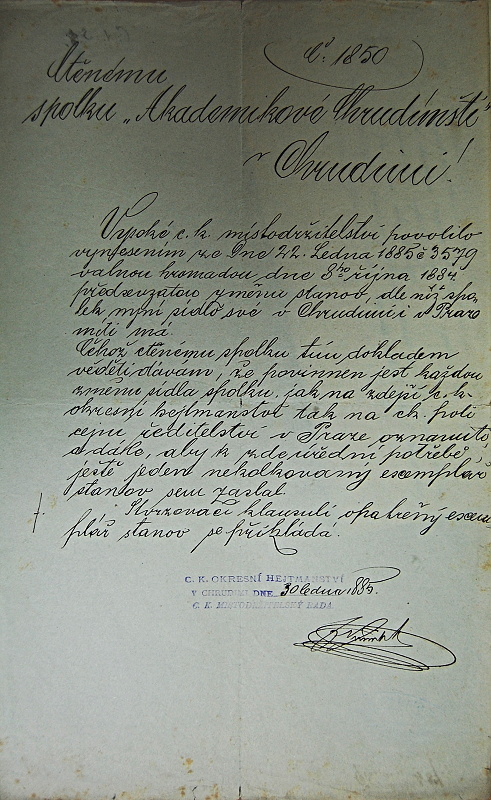 Č. 1850
Ctěnému
spolku „Akademikové Chrudimští"
v Chrudimi!
Vysoké c. k. místodržitelství povolilo
vynesením ze dne 22. Ledna 1885 č 3579
valnou hromadou dne 8ho října 1884
předsevzatou změnu stanov, dle níž spo-
lek nyní sídlo své v Chrudimi i v Praze
míti má.
Čehož ctěnému spolku tím dokladem
věděti dávám, že povinnen jest každou
změnu sídla spolku, jak na zdejší c. k.
okresní hejtmanství tak na ck. poli
cejní ředitelství v Praze oznámiti,
a dále, aby k zdeúřední potřebě
ještě jeden nekolkovaný exemplář
stanov sem zaslal.
Stvrzovací klausulí opatřený exem
plář stanov se přikládá.
C. K. OKRESNÍ HEJTMANSTVÍ
V CHRUDIMI DNE 30 ledna 1885.
C. K. MÍSTODRŽITELSKÝ RADA